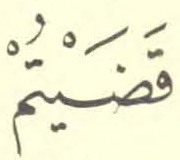 قَضَيْتُمْ